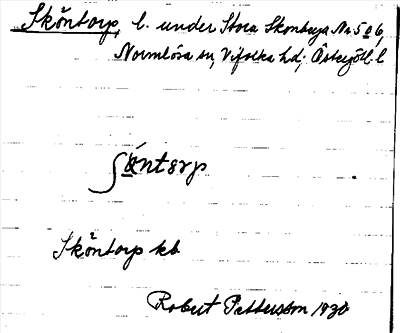 Sköntorp, l. under Stora Skontorp No 5 o 6,
Normlösa sn, Vifolka hd; Östergötl. l
ʃö̀ntɘrp
Sköntorp kb
Robert Pettersson 1930